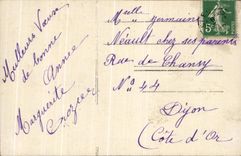 Meilleurs Vœux
de bonne
Année
Marguerite
Crozier
Melle
Mlle Germaine
Néault chez ses parents
Rue de Chanzy
No 44
Dijon
(Côte d'Or)